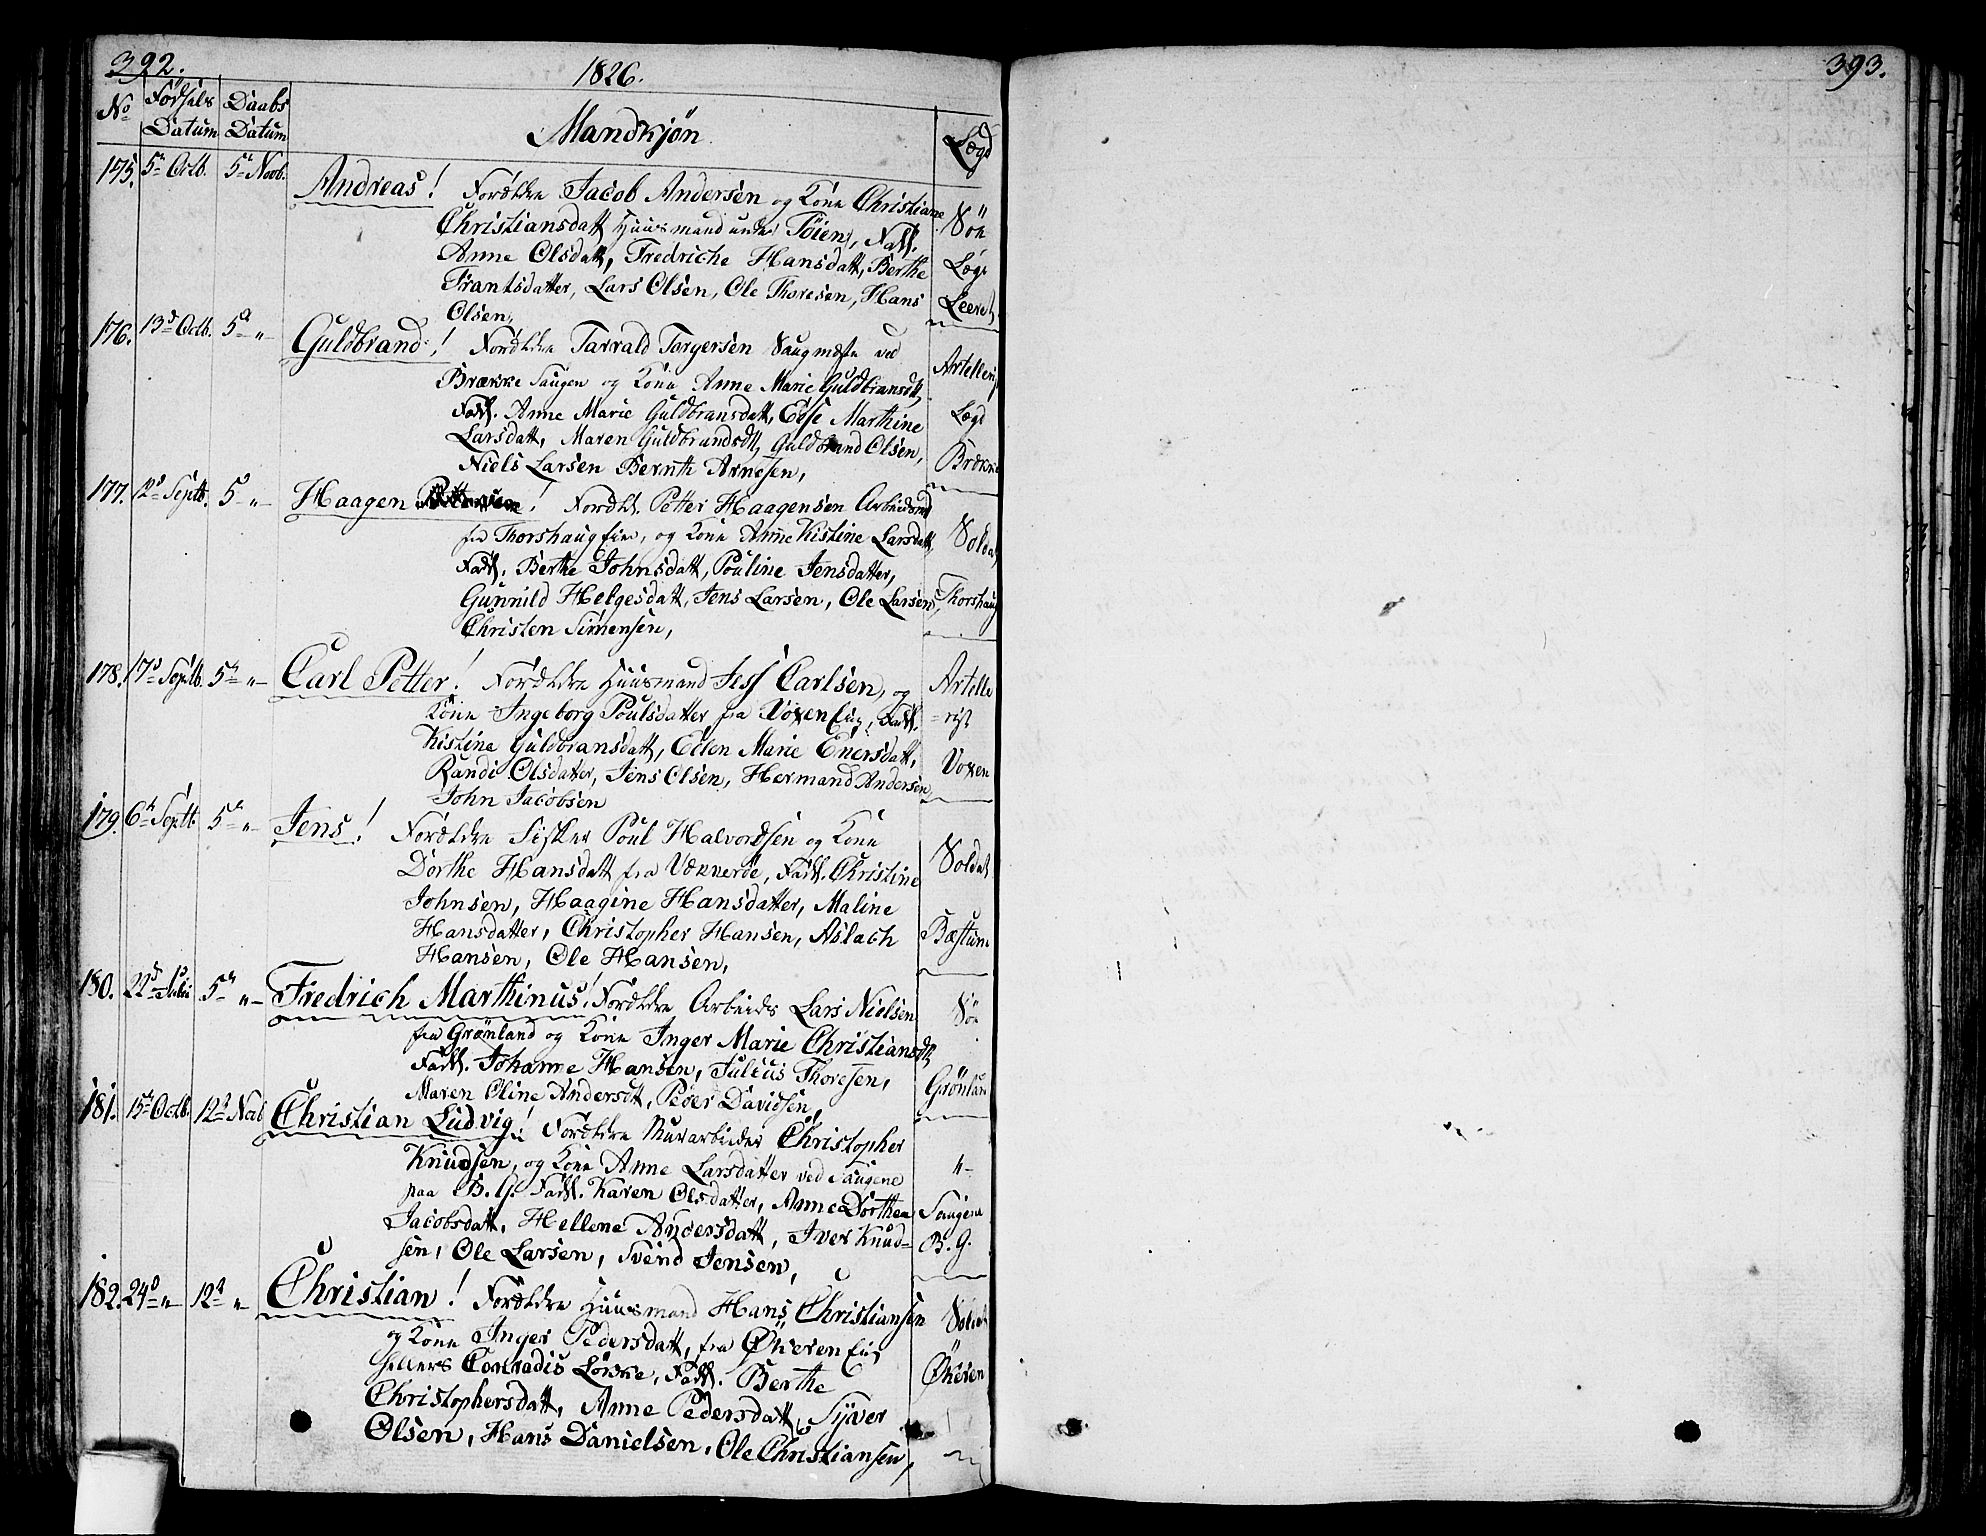 392.
1826.
No Fødsels Datum Daabs Datum Mandkjøn Lægd
175. 5te Octb. 5te Novb. Andreas! Forældre Jacob Andersen og Kone Christiane
Christiansdatt Huusmand under Töien, Fadd.
Anne Olsdatt, Fredriche Hansdatt, Berthe
Frantsdatter, Lars Olsen, Ole Thoresen, Hans
Olsen,
Søe
Læge
Leeret
176. 13de Octb. 5te „ Guldbrand! Forældre Tarrald Torgersen Saugmester ved
Brække Saugen og Kone Anne Marie Guldbransdt,
Fadd. Anne Marie Guldbransdatt, Else Marthine
Larsdatt, Maren Guldbrandsdt, Guldbrand Olsen,
Niels Larsen Bernth Arnesen,
Artelleri
Lægd
Brække
177. 12te Septb. 5te „ Haagen! Forældr. Petter Haagensen Arbeidsmd
fra Thorshaug Eie, og Kone Anne Kistine Larsdatt,
Fadd. Berthe Johnsdatt, Pouline Jensdatter,
Gunnild Helgesdatt, Jens Larsen, Ole Larsen,
Christen Simensen,
Soldat
Thorshaug
178. 17de Septb. 5te „ Carl Petter! Forældre Huusmand Jess Carlsen, og
Kone Ingeborg Poulsdatter fra Voxen Eie, Fadd.
Kistine Guldbransdatt, Ellen Marie Enersdatt,
Randi Olsdatter, Jens Olsen, Hermand Andersen,
John Jacobsen
Artelle
=rist
Voxen
179. 6te Septb. 5te „ Jens! Forældre Poul Halvordsen og Kone
Dorthe Hansdatt fra Vækkerøe, Fadd. Christine
Johnsen, Haagine Hansdatter, Maline
Hansdatter, Christopher Hansen, Aslach
Hansen, Ole Hansen,
Soldat
Bæstum
180. 22de Juli 5te „ Fredrich Marthinus! Forældre Arbeids Lars Nielsen
fra Grønland og Kone Inger Marie Christiansdt,
Fadd. Johanne Hansen, Julius Thoresen,
Maren Oline Andersdt, Peder Davidsen,
Sø
Grønlan
181. 15de Octb. 12te Novb Christian Ludvig! Forældre Murarbieder Christopher
Knudsen, og Kone Anne Larsdatter ved Saugene
paa B. G. Fadd. Karen Olsdatter, Anne Dorthea
Jacobsdatt, Hellene Andersdatt, Iver Knud-
sen, Ole Larsen, Svend Jensen,
„
Saugene
B. G.
182. 24de „ 12te „ Christian! Forældre Huusmand Hans Christiansen
og Kone Inger Pedersdatt, fra Økeren Eie,
hellers Conradis Løkke, Fadd. Berthe
Christophersdatt, Anne Pedersdatt, Syver
Olsen, Hans Danielsen, Ole Christiansen,
Soldat
Økeren
393.